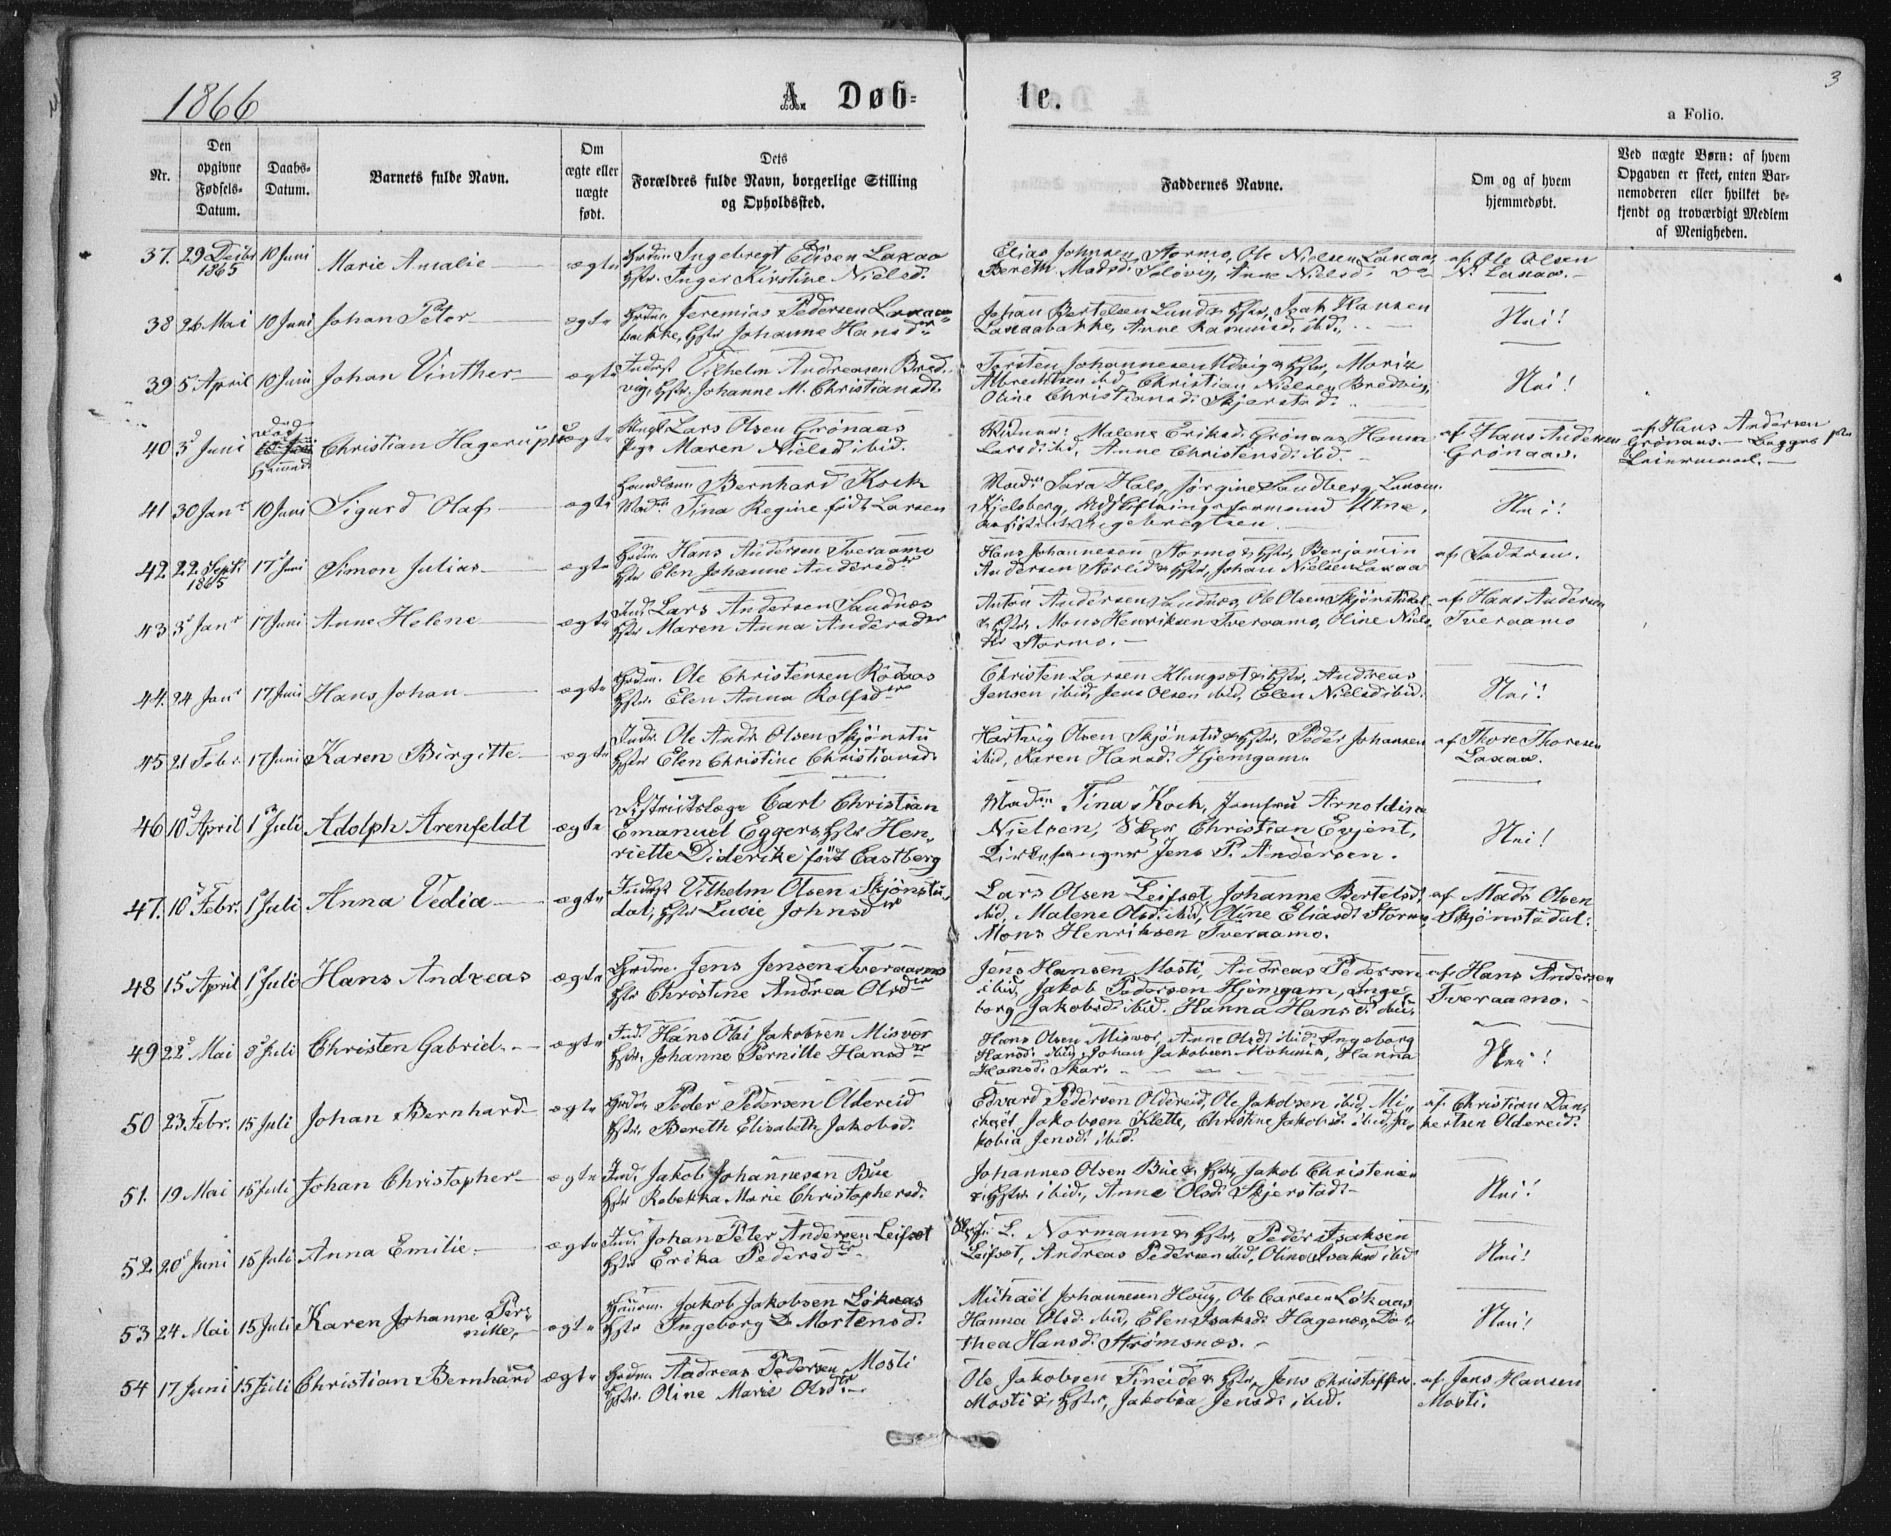 1866
A. Døb-
te.
3
a Folio.
Nr.
Den opgivne Fødsels-Datum.
Daabs-Datum.
Barnets fulde Navn.
Om ægte eller nægte født.
Dets Forældres fulde Navn, borgerlige Stilling og Opholdssted.
Faddernes Navne.
Om og af hvem hjemmedøbt.
Ved nægte Børn: af hvem Opgaven er skeet, enten Barnemoderen eller hvilket bekjendt og troværdigt Medlem af Menigheden.
37. 29 Decbr 1865 10 Juni Marie Amalie ægte
Ingebregt Edisen Laxaa
Inger Kirstine Nielsd.
Elias Johnsen Stormo, Ole Nielsen Laxaa,
Bereth Madsd. Soløvig, Anne Nielsd. do
af Ole Olsen
N. Laxaa.
38 26 Mai 10 Juni Johan Peter ægte
Jeremias Pedersen Laxaa-
bakke, Hstr Johanne Hansdr
Johan Bertelsen Lund & Hstr, Isak Hansen
Laxaabakke, Anne Rasmusd. ibid,
Nei!
39 5 April 10 Juni Johan Vinther ægte
Inderst Vilhelm Andreasen Bred-
vig, Hstr. Johanne M. Christiansd.
Torsten Johannesen Udvig & Hstr, Moritz
Albrechtsen ibid, Christian Nielsen Bredvig,
Oline Christiansd. Skjerstad.
Nei!
40 3d Juni Christian Hagerup uægte
Ungk. Lars Olsen Grønaas
Pige Maren Nielsd ibid.
Malene Eriksd. Grønaas, Hanna
Larsd. ibid, Anne Christensd. ibid.
af Hans Andersen
Grønaas.
af Hans Andersen
Grønaas. Begges
Leiermaal.
41 30 Janr 10 Juni Sigurd Olaf ægte
Handlsm. Bernhard Kock
Mad. Tina Regine født Larsen
Mad. Sara Hals, Jørgine Sandberg, Lars
Kjelsberg, Udskiftningsformand Utne,
Assistent Ingebregtsen.
Nei!
42 22 Sept. 1865 17 Juni Simon Julius ægte
Hans Andersen Tveraamo
Hstr Elen Johanne Andersdr
Hans Johannesen Stormo & Hstr, Benjamin
Andersen Storlid & Hstr, Johan Nielsen Laxaa
af Faderen.
43 3 Janr 17 Juni Anne Helene ægte
Ind. Lars Andersen Sandnæs
Hstr Maren Anna Andersdr
Anton Andersen Sandnæs, Ole Olsen Skjønstudal
& Hstr, Mons Henriksen Tveraamo, Oline Niels-
dr Stormo.
af Hans Andersen
Tveraamo
44. 24 Janr 17 Juni Hans Johan ægte
Ole Christensen Rødaas
Hstr. Elen Anna Rolfsdr
Christen Larsen Klungset & Hstr, Andreas
Jensen ibid, Jens Olsen ibid, Elen Nielsd ibid.
Nei!
45 21 Febr. 17 Juni Karen Birgitte ægte
Indr. Ole Andr. Olsen Skjønstu
Hstr Elen Christine Christiansd.
Hartvig Olsen Skjønstu & Hstr, Peder Johansen
ibid, Karen Hansd. Hjemgam
af Thore Thoresen
Laxaa.
46 10 April 1 Juli Adolph Arenfeldt ægte
Districtslæge Carl Christian
Emanuel Eggers, Hstr Hen-
riette Diderike født Castberg
Madm Tina Kock, Jomfru Arnoldine
Nielsen, Christian Evjent,
Kirkesanger Jens P. Andersen.
Nei!
47. 10 Febr. 1 Juli Anna Vedia ægte
Inderst Vilhelm Olsen Skjønstu-
dal, Hstr Lucie Johnsdr
Lars Olsen Leifset, Johanne Bertelsd.
ibid, Malene Olsd. ibid, Oline Eliasd. Stormo,
Mons Henriksen Tveraamo.
af Mads Olsen
Skjønstudal.
48 15 April 1 Juli Hans Andreas ægte
Grdm. Jens Jensen Tveraamo
Hstr Christine Andrea Olsdr
Jens Hansen Mosti, Andreas Pedersen
ibid, Jakob Pedersen Hjemgam, Inge-
borg Jakobsd. ibid. Hanna Hansd. ibid.
af Hans Andersen
Tveraamo.
49 22 Mai 8 Juli Christen Gabriel ægte
Ind. Hans Olai Jakobsen Misvær
Hstr. Johanne Pernille Hansdr
Hans Olsen Misvær, Anne Olsd. ibid. Ingeborg
Hansd. ibid, Johan Jakobsen, Hanna
Hansd. Skar.
Nei!
50 23 Febr. 15 Juli Johan Bernhard ægte
Peder Pedersen Oldereid
Hstr. Bereth Elisabeth Jakobsd.
Edvard Pedersen Oldereid, Ole Jakobsen ibid, Mi-
chael Jakobsen Klette, Christine Jakobsd. ibid, Ja-
kobia Jensd. ibid.
af Christian Dan-
kertsen Oldereid.
51. 19 Mai 15 Juli Johan Christopher ægte
Ind. Jakob Johannesen Bue
Hstr Rebekka Marie Christophersd.
Johannes Olsen Bue & Hstr, Jakob Christensen
& Hstr ibid, Anne Olsd. Skjerstad.
Nei!
52 20 Juni 15 Juli Anna Emilie ægte
Ind. Johan Peter Andersen Leifset
Hstr Erika Pedersdr
L. Normann & Hstr, Peder Isaksen
Leifset, Andreas Pedersen ibid, Oline Isaksd ibid
Nei!
53 24 Mai 15 Juli Karen Johanne Per-
nille ægte
Husm. Jakob Jakobsen Løkaas
Hstr Ingeborg D. Mortensd.
Michael Johannesen Houg, Ole Carlsen Løkaas
Hanna Olsd. ibid, Elen Isaksd. Hagenæs, Do-
thea Hansd. Strømsnæs.
Nei!
54 17 Juni 15 Juli Christian Bernhard ægte
Grdm. Andreas Pedersen Mosti
Hstr. Oline Marie Olsdr
Ole Jakobsen Fineide & Hstr, Jens Christoffers.
Mosti & Hstr, Jakobia Jensd. ibid.
af Jens Hansen
Mosti.